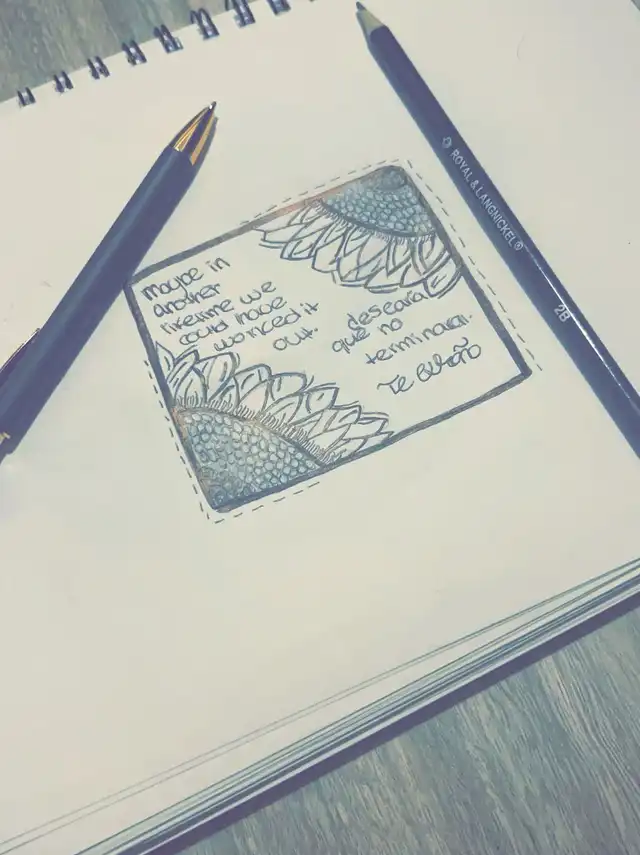 maybe in
another
lifetime we
could have
worked it
out.
desearia
que no
terminara.
Te Extraño
ROYAL & LANGNICKEL®
2B